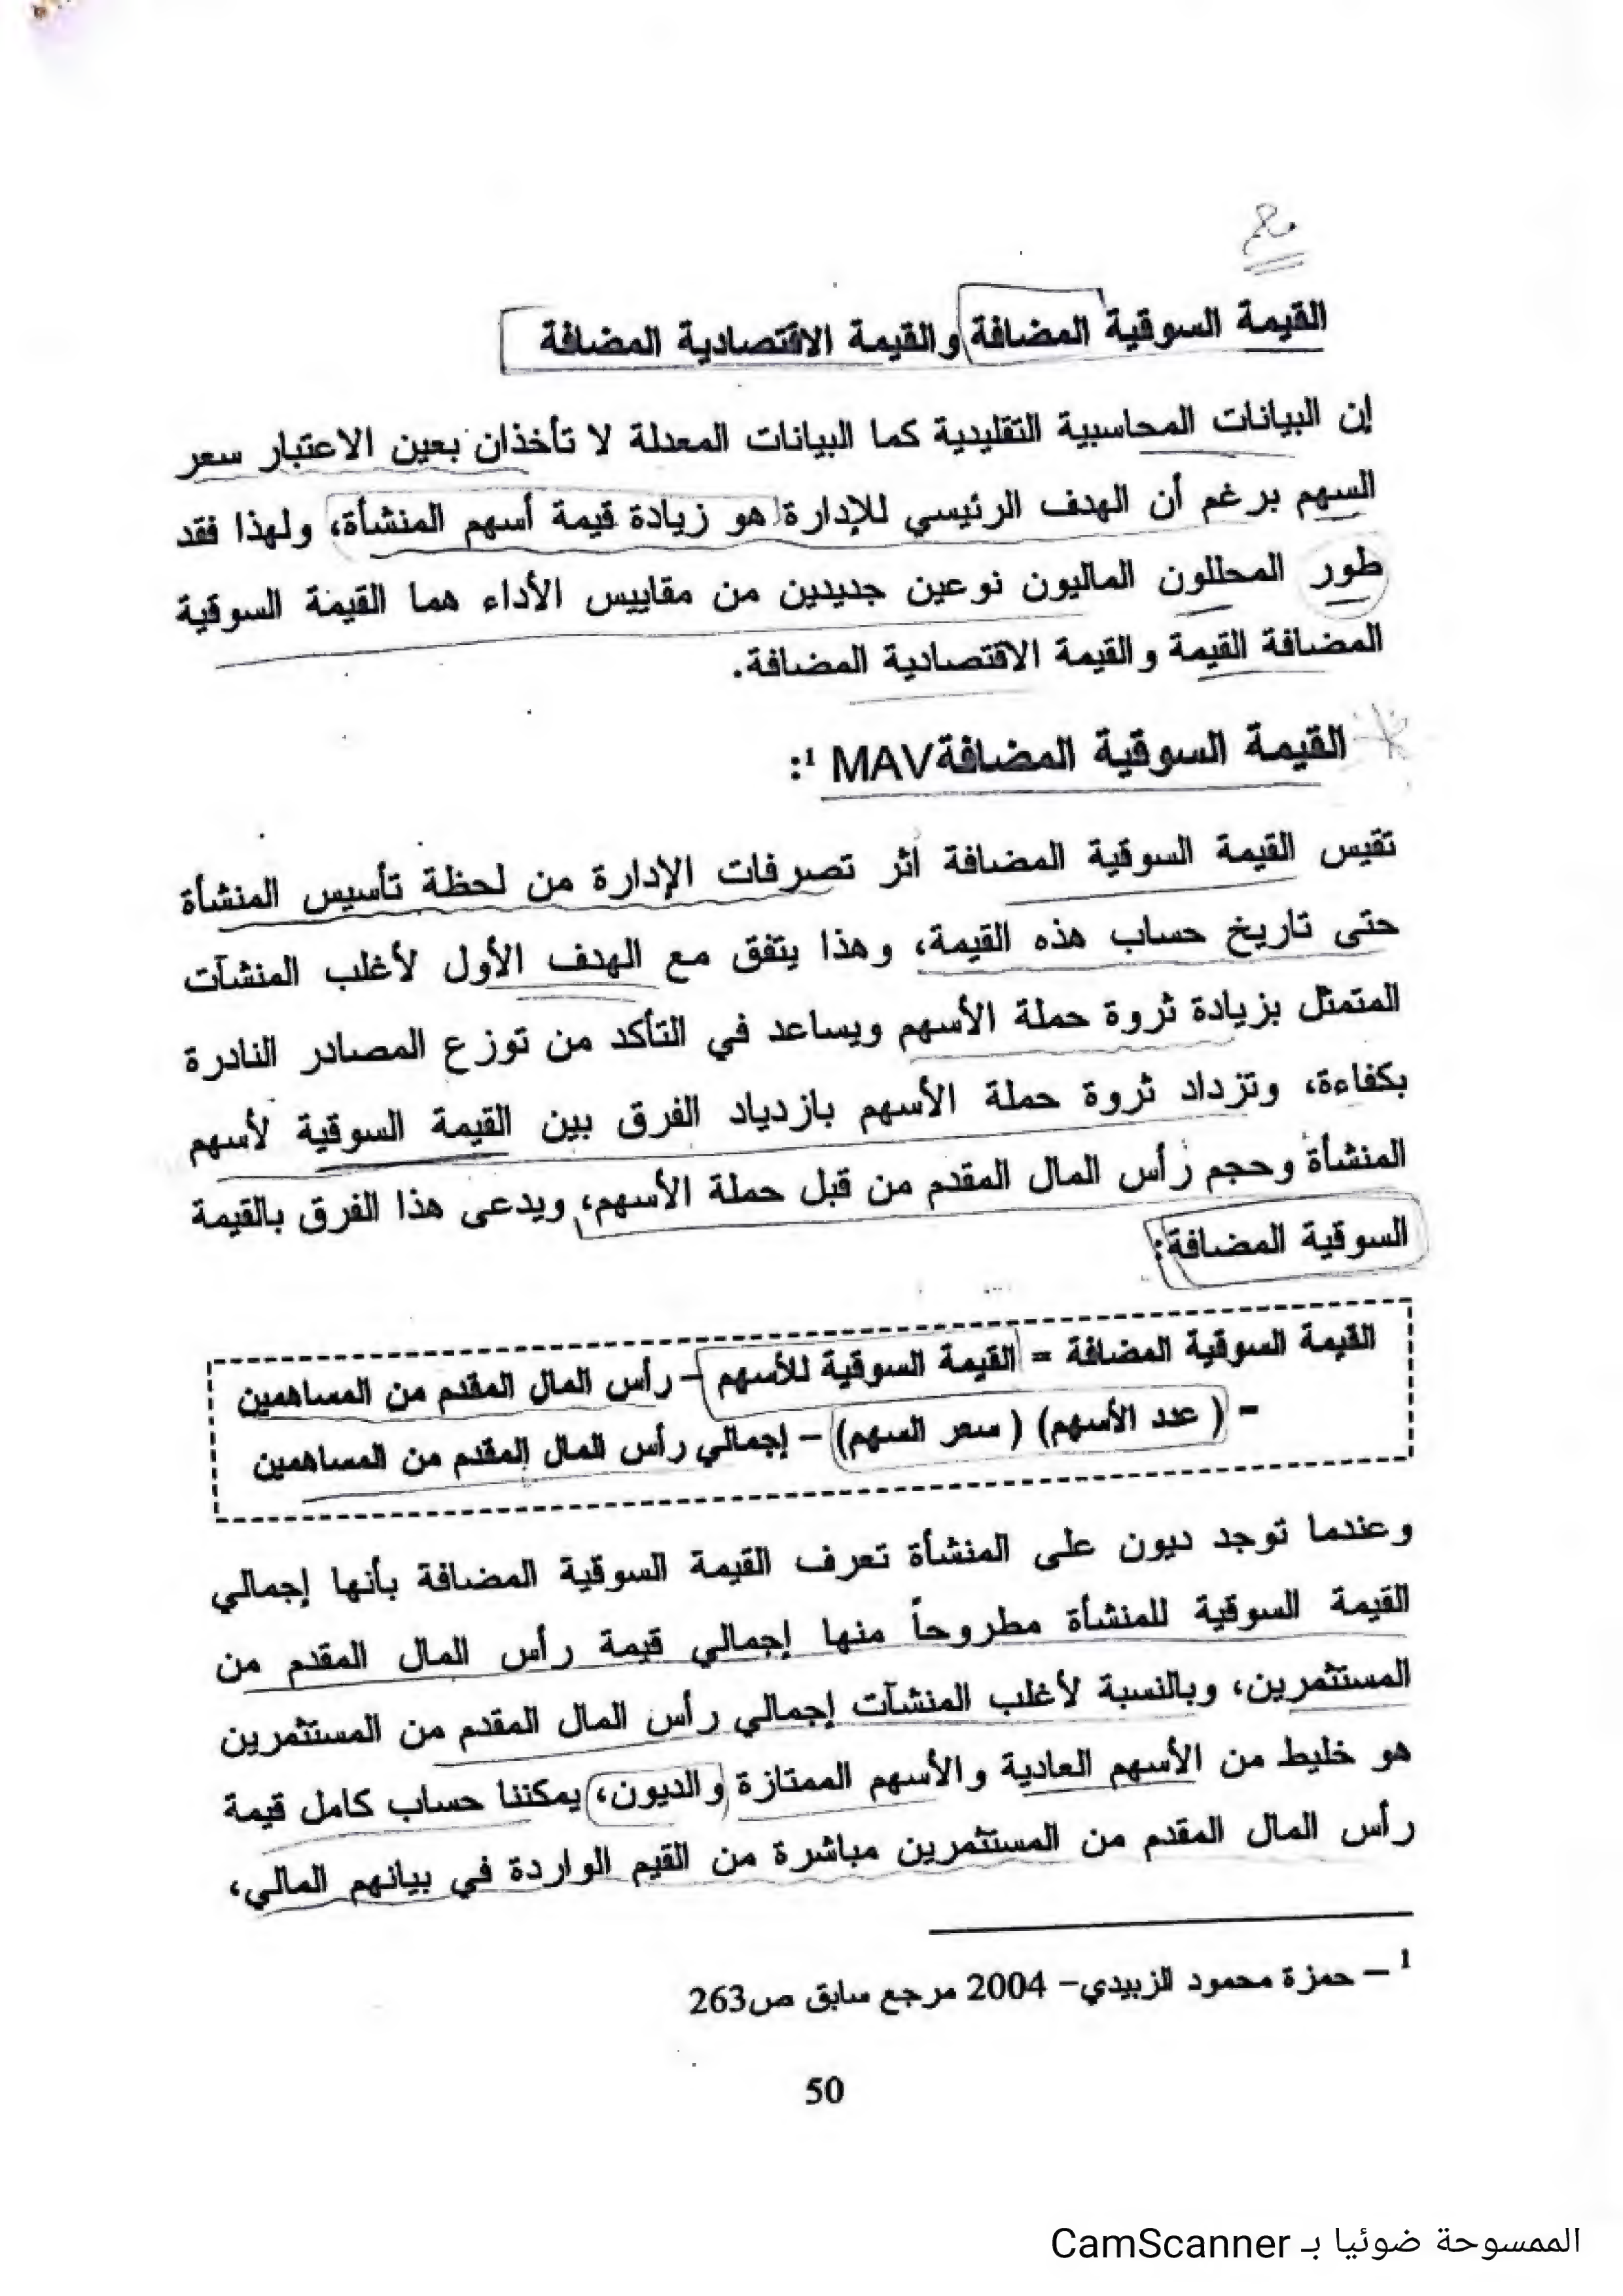 مهم
القيمة السوقية المضافة والقيمة الاقتصادية المضافة
إن البيانات المحاسبية التقليدية كما البيانات المعدلة لا تأخذان بعين الاعتبار سعر
السهم برغم أن الهدف الرئيسي للإدارة هو زيادة قيمة أسهم المنشأة، ولهذا فقد
طور المحللون الماليون نوعين جديدين من مقاييس الأداء هما القيمة السوقية
المضافة القيمة والقيمة الاقتصادية المضافة.
القيمة السوقية المضافة MAV ¹:
تقيس القيمة السوقية المضافة أثر تصرفات الإدارة من لحظة تأسيس المنشأة
حتى تاريخ حساب هذه القيمة، وهذا يتفق مع الهدف الأول لأغلب المنشآت
المتمثل بزيادة ثروة حملة الأسهم ويساعد في التأكد من توزع المصادر النادرة
بكفاءة، وتزداد ثروة حملة الأسهم بازدياد الفرق بين القيمة السوقية لأسهم
المنشأة وحجم رأس المال المقدم من قبل حملة الأسهم، ويدعى هذا الفرق بالقيمة
السوقية المضافة:
القيمة السوقية المضافة = القيمة السوقية للأسهم – رأس المال المقدم من المساهمين
= ( عدد الأسهم) ( سعر السهم) – إجمالي رأس المال المقدم من المساهمين
وعندما توجد ديون على المنشأة تعرف القيمة السوقية المضافة بأنها إجمالي
القيمة السوقية للمنشأة مطروحاً منها إجمالي قيمة رأس المال المقدم من
المستثمرين، وبالنسبة لأغلب المنشآت إجمالي رأس المال المقدم من المستثمرين
هو خليط من الأسهم العادية والأسهم الممتازة والديون، يمكننا حساب كامل قيمة
رأس المال المقدم من المستثمرين مباشرة من القيم الواردة في بيانهم المالي،
¹ – حمزة محمود الزبيدي– 2004 مرجع سابق ص263
50
الممسوحة ضوئيا بـ CamScanner